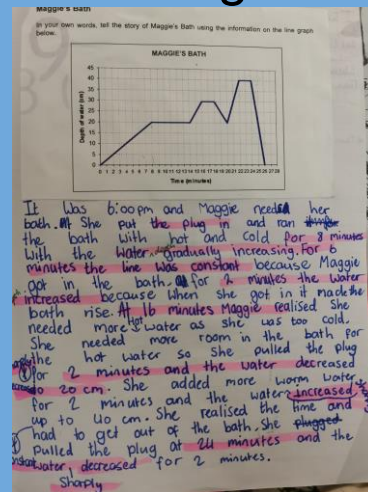 Maggie's Bath
In your own words, tell the story of Maggie's Bath using the information on the line graph
below.
MAGGIE'S BATH
Depth of water (cm)
45
40
35
30
25
20
15
10
5
0
0 1 2 3 4 5 6 7 8 9 10 11 12 13 14 15 16 17 18 19 20 21 22 23 24 25 26 27 28
Time (minutes)
It was 6:00pm and Maggie needed her
bath. She put the plug in and ran
the bath with hot and cold for 8 minutes
with the water gradually increasing. For 6
minutes the line was constant because Maggie
got in the bath. for 2 minutes the water
increased because when she got in it made the
bath rise. At 16 minutes Maggie realised She
needed more Hot water as she was too cold.
She needed more room in the bath for
the hot water so she pulled the plug
for 2 minutes and the water decreased
to 20 cm. She added more warm water
for 2 minutes and the water increased
up to 40 cm. She realised the time and
had to get out of the bath. She plugged
pulled the plug at 24 minutes and the
water decreased for 2 minutes.
Sharply